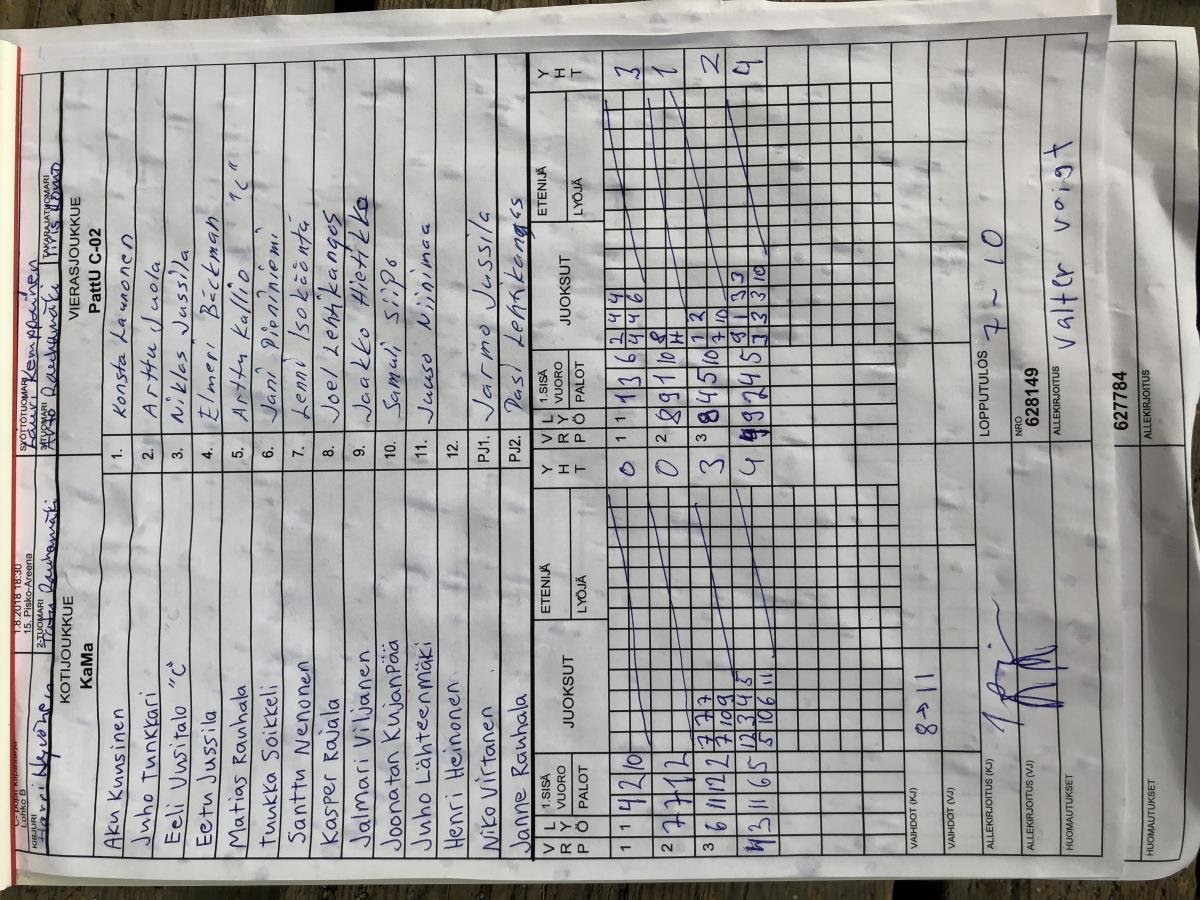 Lohko B
1.8.2018 18:30
15. Pisko-Areena
SYÖTTÖTUOMARI
Lauri Kemppainen
KIRJURI
2-TUOMARI
3-TUOMARI
TAKARAJATUOMARI
KOTIJOUKKUE
KaMa
VIERASJOUKKUE
PattU C-02
Aku Kuusinen 1. Konsta Launonen
Juho Tunkkari 2. Arttu Juola
Eeli Uusitalo "C" 3. Niklas Jussila
Eetu Jussila 4. Elmeri Bäckman
Matias Rauhala 5. Arttu Kallio "C"
Tuukka Soikkeli 6. Jani Pieniniemi
Santtu Nenonen 7. Lenni Isokääntä
Kasper Rajala 8. Joel Lehtikangas
Jalmari Viljanen 9. Jaakko Hietikko
Joonatan Kujanpää 10. Samuli Siipo
Juho Lähteenmäki 11. Juuso Niinimaa
Henri Heinonen 12.
Niko Virtanen PJ1. Jarmo Jussila
Janne Rauhala PJ2. Pasi Lehtikangas
V R P L Y Ö 1.SISÄ VUORO PALOT JUOKSUT ETENIJÄ LYÖJÄ Y H T V R P L Y Ö 1.SISÄ VUORO PALOT JUOKSUT ETENIJÄ LYÖJÄ Y H T
1 1 4 2 10 0 1 1 3 6 2 4 4 4 4 6 3
2 7 7 1 2 0 2 8 9 1 10 8 H 1
3 6 11 12 2 7 7 7 7 10 9 3 3 8 4 5 10 1 2 7 10 2
4 3 11 6 5 12 3 4 5 5 10 6 11 4 4 9 2 4 5 9 1 3 3 3 3 3 10 4
VAIHDOT (KJ) 8→11
VAIHDOT (VJ)
ALLEKIRJOITUS (KJ) LOPPUTULOS 7 - 10
ALLEKIRJOITUS (VJ) NRO 628149
HUOMAUTUKSET ALLEKIRJOITUS Valter Voigt
627784
HUOMAUTUKSET ALLEKIRJOITUS